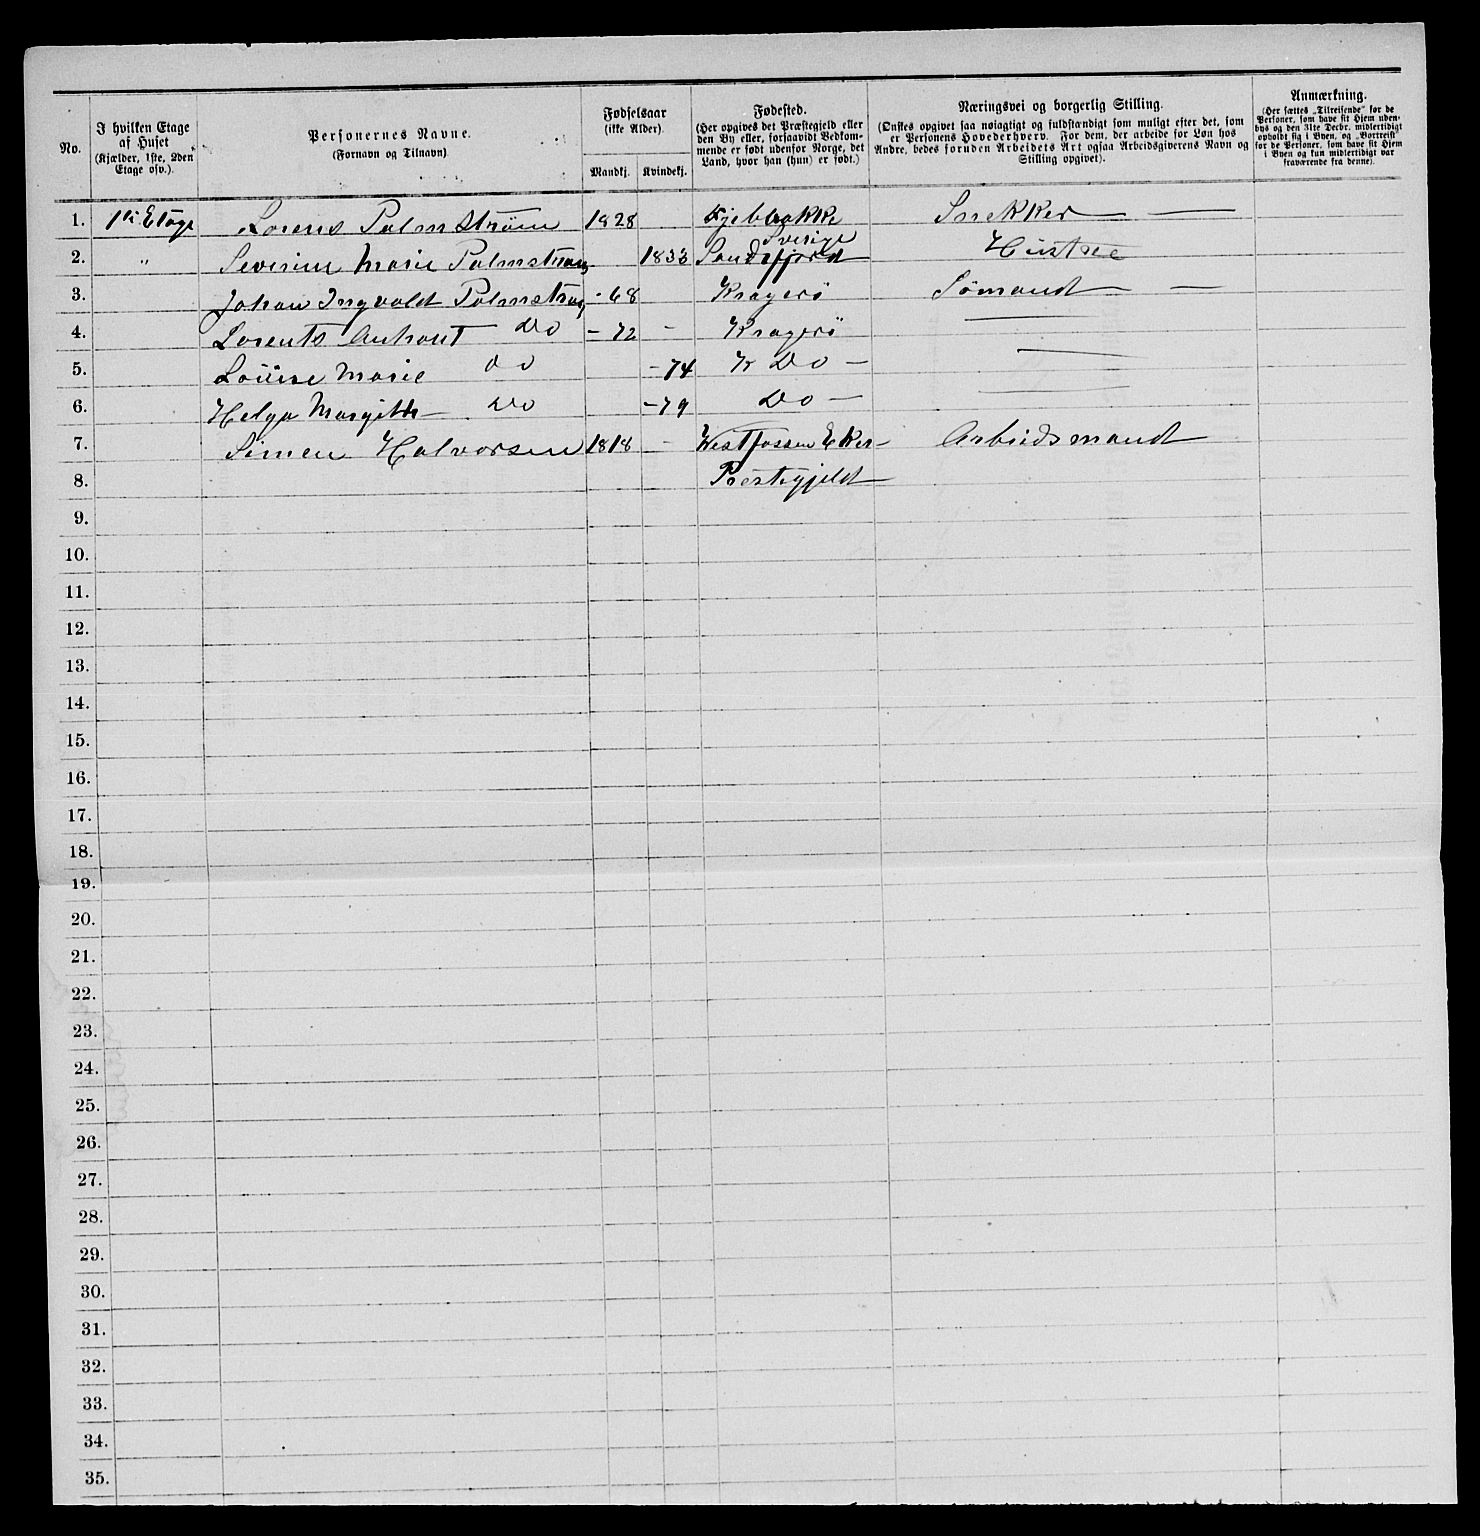 No.
I hvilken Etage af Huset (Kjælder, 1ste, 2den Etage osv.).
Personernes Navne. (Fornavn og Tilnavn)
Fødselsaar (ikke Alder).
Mandkj. Kvindekj.
Fødested. (Her opgives det Præstegjeld eller den By eller, forsaavidt Vedkommende er født udenfor Norge, det Land, hvor han (hun) er født.)
Næringsvei og borgerlig Stilling. (Ønskes opgivet saa nøiagtigt og fuldstændigt som muligt efter det, som er Personens Hovederhverv. For dem, der arbeide for Løn hos Andre, bedes foruden Arbeidets Art ogsaa Arbeidsgiverens Navn og Stilling opgivet).
Anmærkning. (Her sættes „Tilreisende" for de Personer, som have sit Hjem udenbys og den 31te Decbr. midlertidigt opholdt sig i Byen, og „Bortreist" for de Personer, som have sit Hjem i Byen og kun midlertidigt var fraværende fra denne).
1. 1ste Etage Lorens Palmstrøm 1828 Sverige Snekker
2. " Severine Marie Palmstrøm 1833 Sandefjord Hustru
3. Johan Ingvald Palmstrøm -68 Kragerø Sømand
4. Lorents Do -72 - Kragerø
5. Louise Marie Do -74 K Do
6. Helga Margith Do -79 Do
7. Simen Halvorsen 1818 - Westfossen Eker Arbeidsmand
8. Prestegjeld
9.
10.
11.
12.
13.
14.
15.
16.
17.
18.
19.
20.
21.
22.
23.
24.
25.
26.
27.
28.
29.
30.
31.
32.
33.
34.
35.